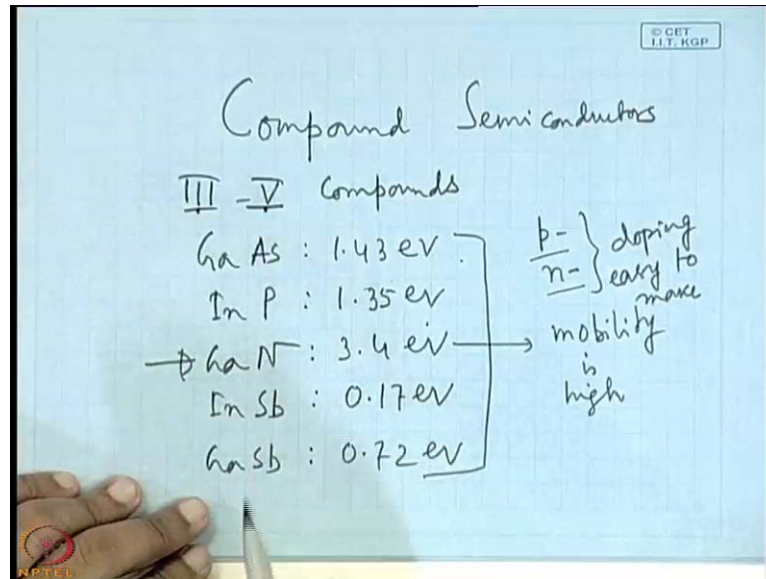 © CET
I.I.T. KGP
Compound Semiconductors
III - V Compounds
GaAs : 1.43 eV
InP : 1.35 eV
GaN : 3.4 eV
InSb : 0.17 eV
GaSb : 0.72 eV
p-
n-
doping
easy to
make
mobility
is
high
NPTEL